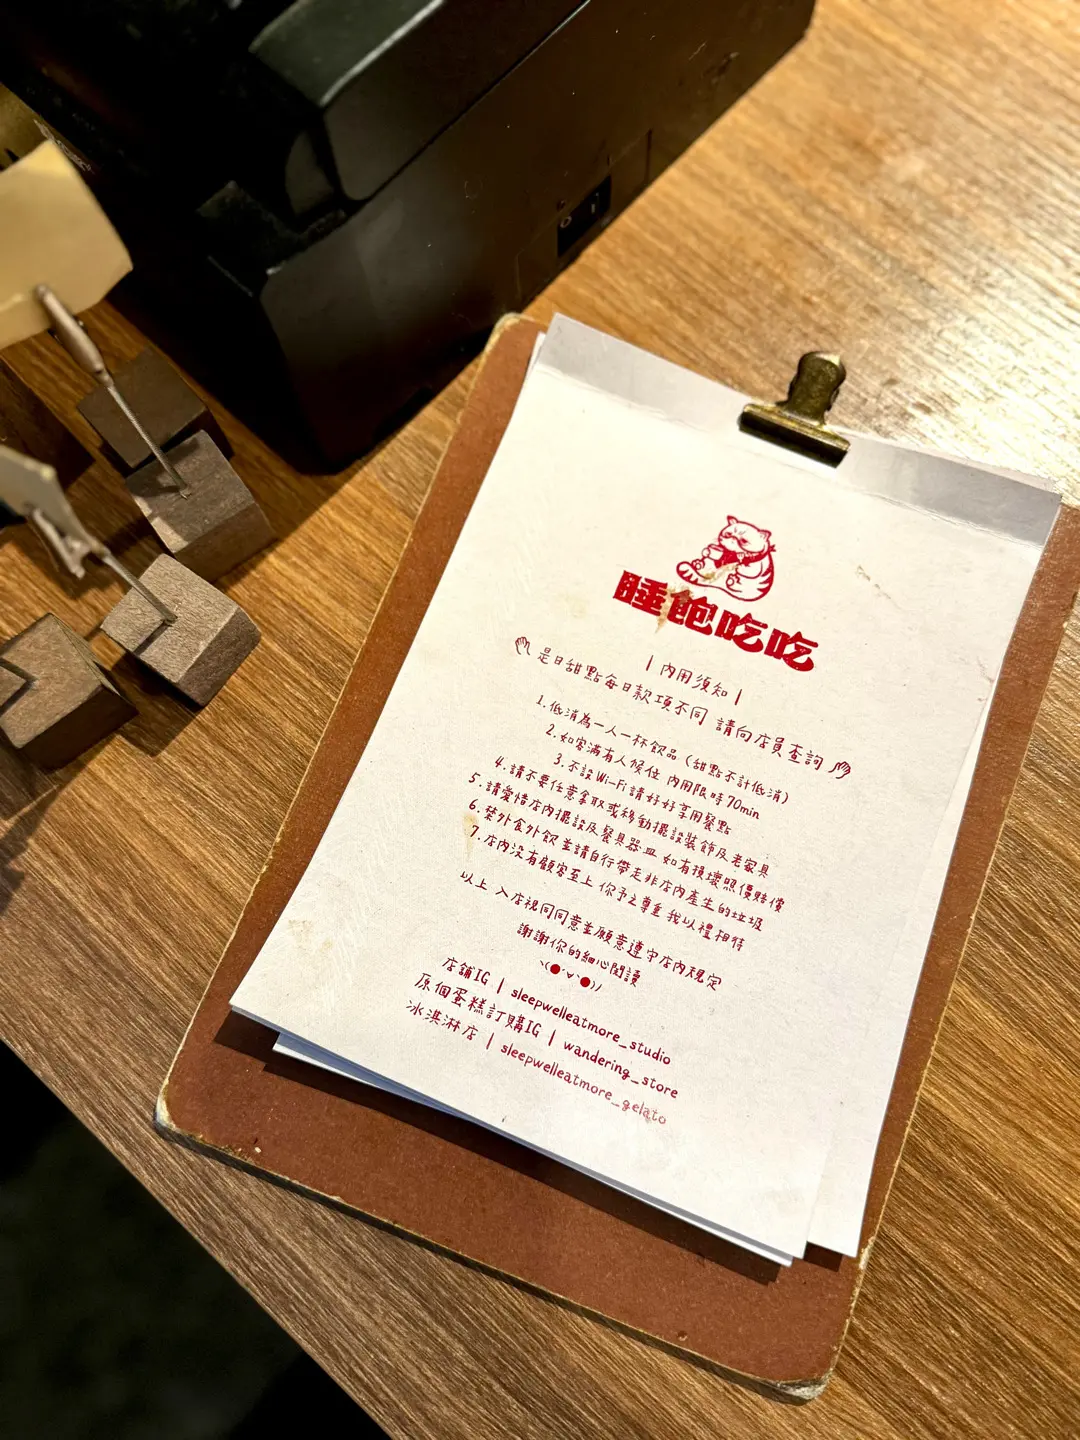 睡飽吃吃
| 內用須知 |
是日甜點每日款項不同 請向店員查詢
1. 低消為一人一杯飲品 (甜點不計低消)
2. 如客滿有人候位 內用限時70min
3. 不設Wi-Fi 請好好享用餐點
4. 請不要任意拿取或移動擺設裝飾及老家具
5. 請愛惜店內擺設及餐具器皿 如有損壞照價賠償
6. 禁外食外飲 並請自行帶走非店內產生的垃圾
7. 店內沒有顧客至上 你予之尊重 我以禮相待
以上 入店視同同意並願意遵守店內規定
謝謝你的細心閱讀
店鋪IG | sleepwelleatmore_studio
原個蛋糕訂購IG | wandering_store
冰淇淋店 | sleepwelleatmore_gelato